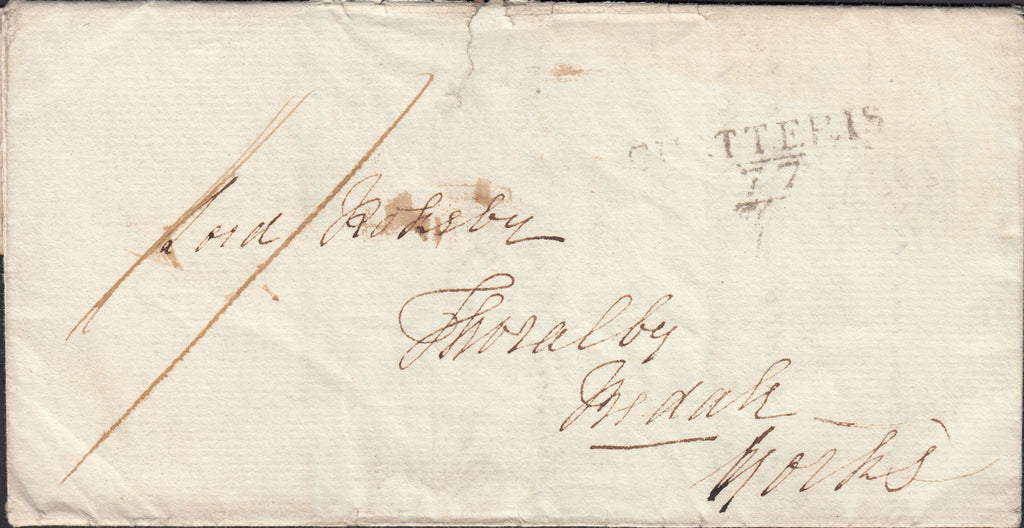 CHATTERIS
77
Lord Rokeby
Thoralby
Bedale
Yorks